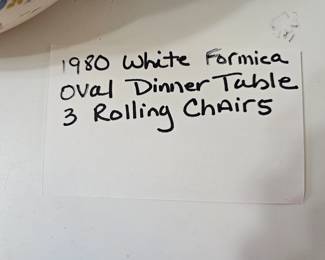 1980 White Formica
Oval Dinner Table
3 Rolling Chairs